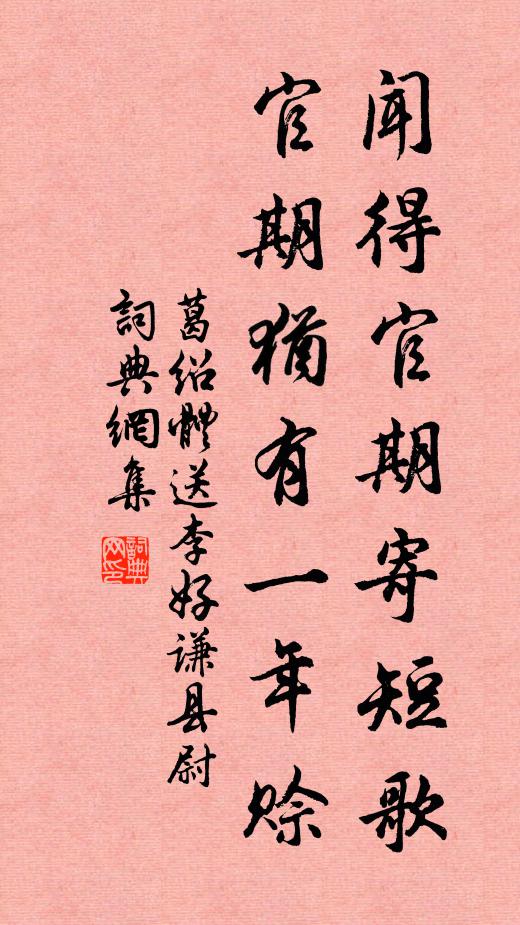 闻得官期寄短歌
官期犹有一年赊
葛绍體送李好谦县尉
詞典網集
詞典网印